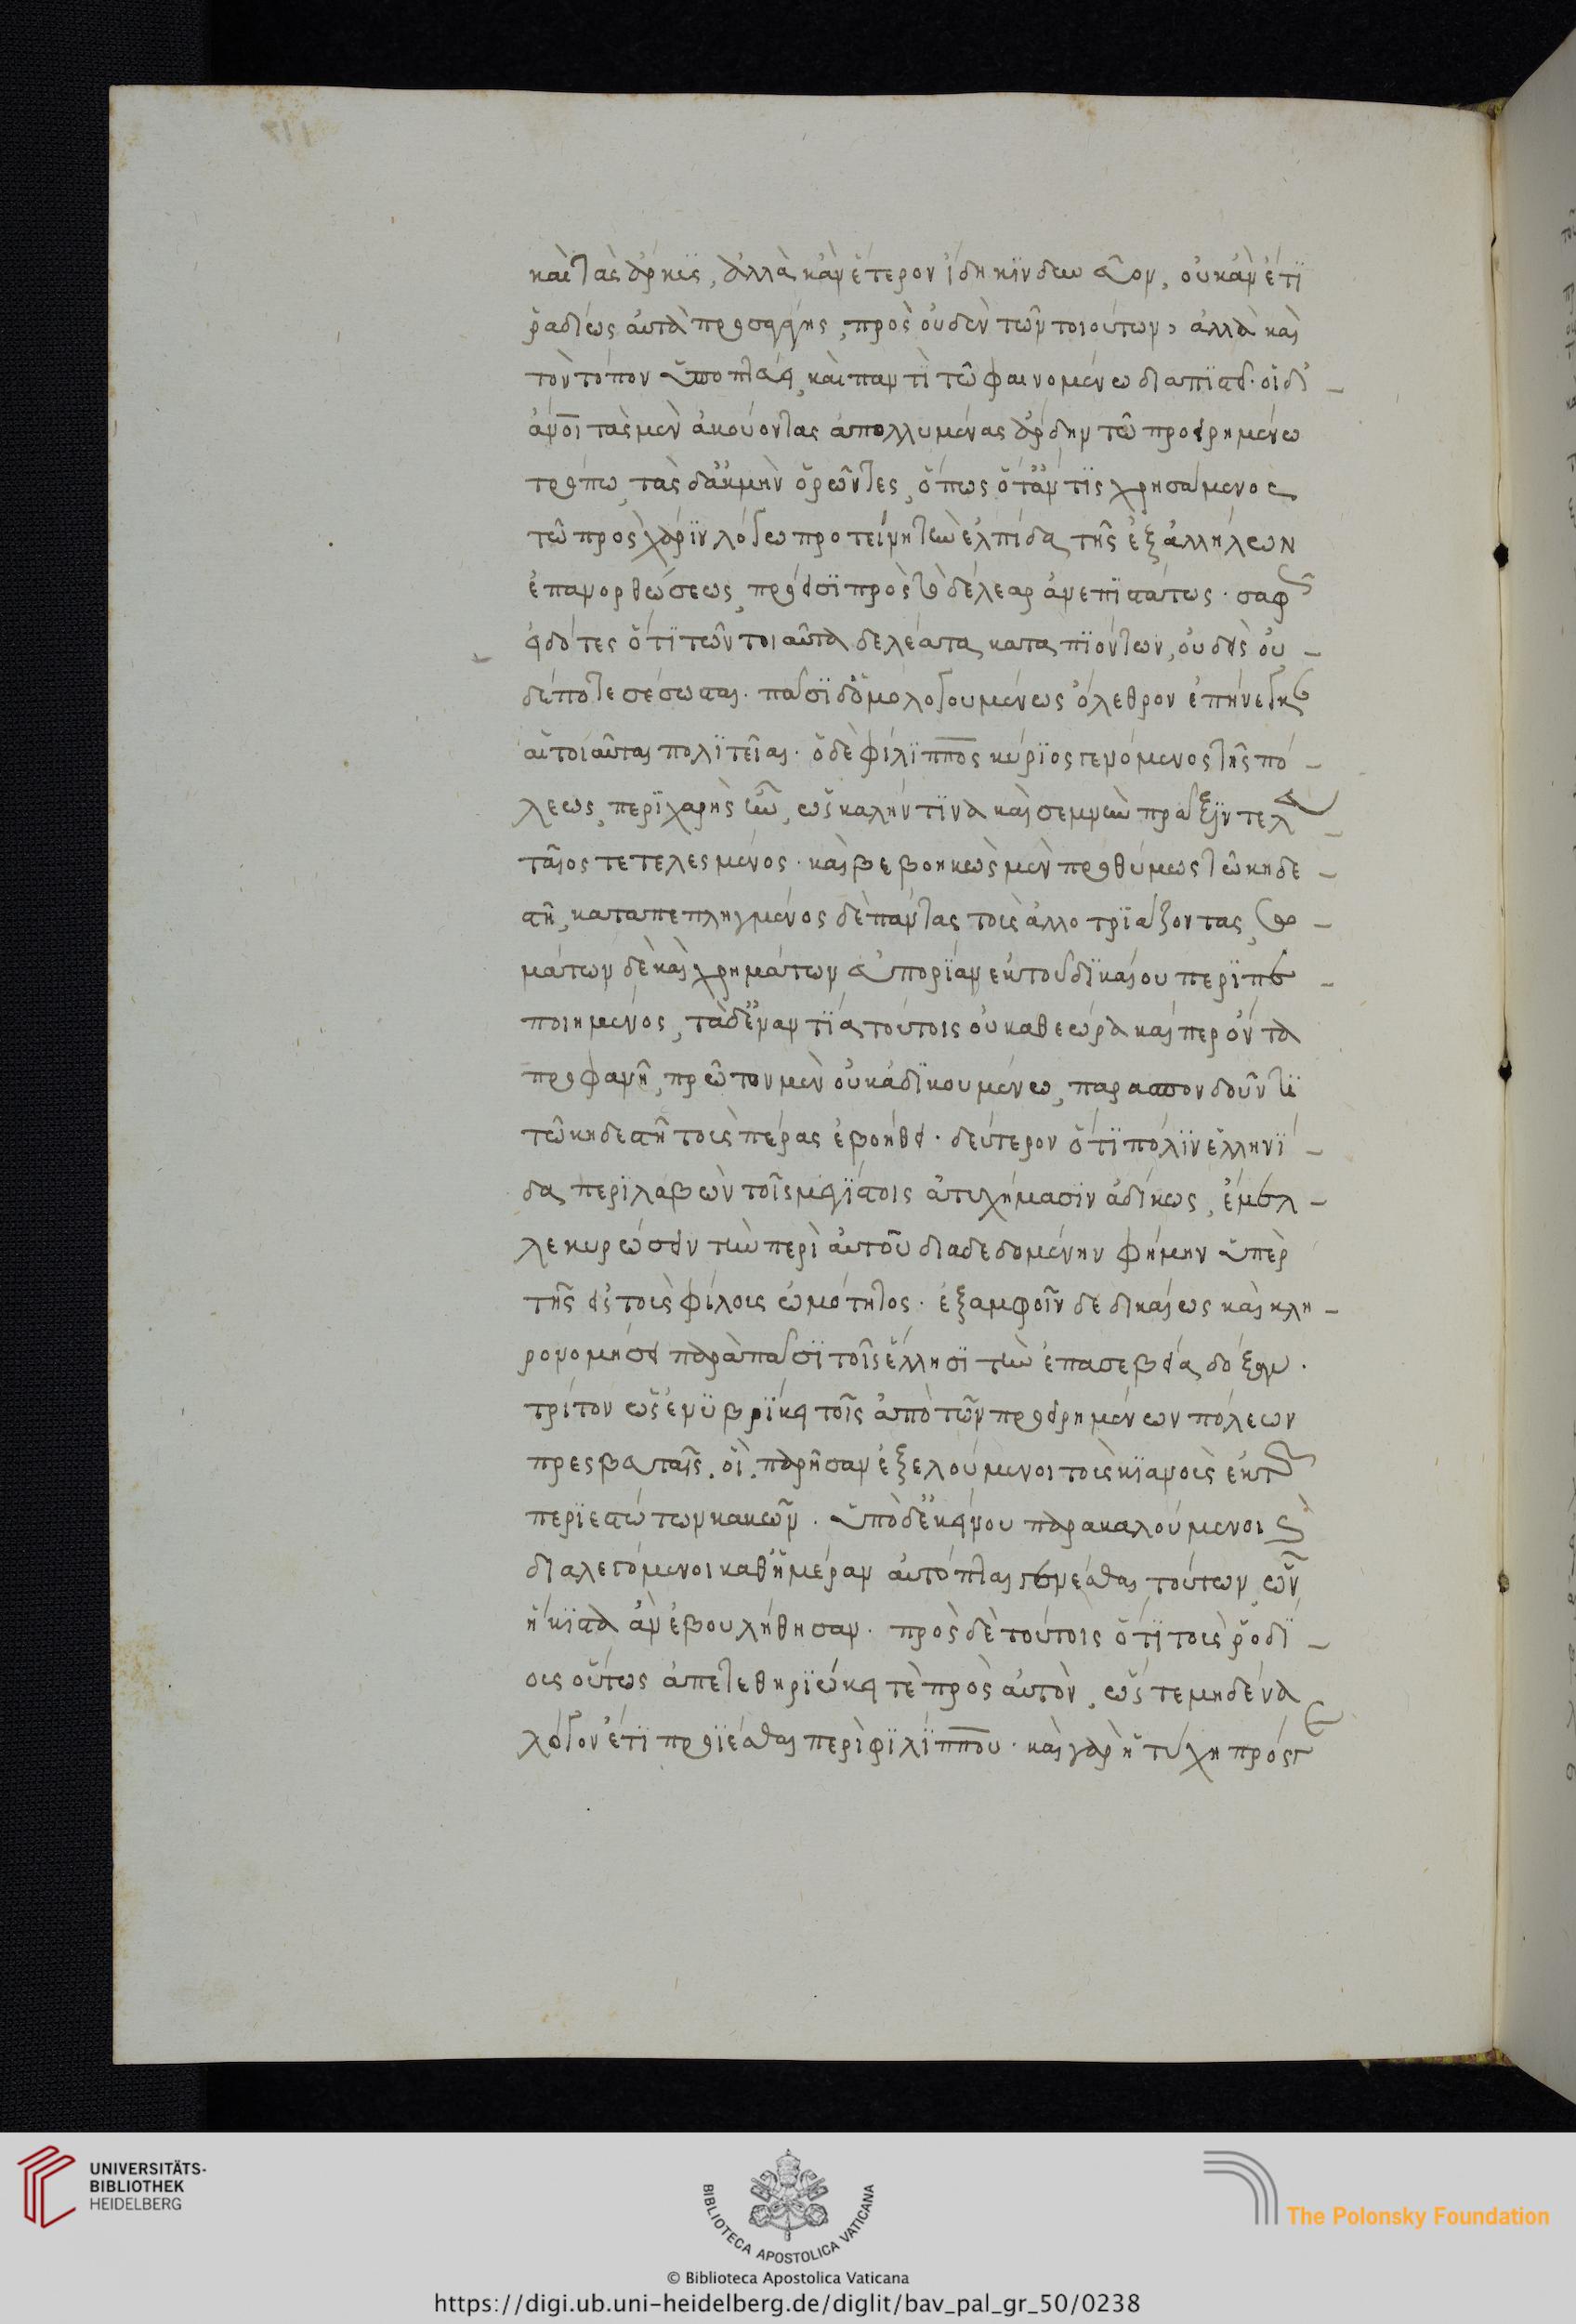 καὶ τὰς ἄρκυς, ἀλλὰ κἂν ἕτερον ἴδῃ κινδυνεῦον, οὐκ ἂν ἔτι
ῥαδίως αὐτὰ προσαγάγῃς πρὸς οὐδὲν τῶν τοιούτων, ἀλλὰ καὶ
τὸν τόπον ὑποπτεύει, καὶ παντὶ τῷ φαινομένῳ διαπιστεῖ. οἱ δ'
ἄνοι τὰς μὲν ἀκούοντας ἀπολλυμένας ἄρδην τῷ προειρημένῳ
τρόπῳ, τὰς δ' ἀκμὴν ὁρῶντες, ὅπως ὅταν τις χρησάμενος
τῷ πρὸς χάριν λόγῳ προτείνῃ τὴν ἐλπίδα τῆς ἐξ ἀλλήλων
ἐπανορθώσεως, πρόεισι πρὸς τὸ δέλεαρ ἀνεπιστάτως. σαφῶς
εἰδότες ὅτι τῶν τοιαῦτα δελέατα καταπιόντων, οὐδεὶς οὐ
δέποτε σέσωσται. πᾶσι δ' ὁμολογουμένως ὄλεθρον ἐπήνεγκαν
αἱ τοιαῦται πολιτεῖαι. ὁ δὲ φίλιππος κύριος γενόμενος τῆς πό
λεως, περιχαρὴς ἦν, ὡς καλήν τινα καὶ σεμνὴν πρᾶξιν τελευ
ταῖος τετελεσμένος. καὶ βεβοηκὼς μὲν προθύμως τῷ κηδε
στῇ, καταπεπληγμένος δὲ πάντας τοὺς ἀλλοτριάζοντας, σω
μάτων δὲ καὶ χρημάτων εὐπορίαν ἐκ τοῦ δικαίου περιπε
ποιημένος, τὰ δ' ἐναντία τούτοις οὐ καθεώρα καίπερ ὄντα
προφανῆ, πρῶτον μὲν οὐκ ἀδικουμένῳ, παρασπονδοῦντι
τῷ κηδεστῇ τοὺς πέρας ἐβοήθει. δεύτερον ὅτι πόλιν ἑλληνί
δα περιλαβὼν τοῖς μεγίστοις ἀτυχήμασιν ἀδίκως, ἔμελ
λε κυρώσειν τὴν περὶ αὐτοῦ διαδεδομένην φήμην ὑπὲρ
τῆς εἰς τοὺς φίλους ὠμότητος. ἐξ ἀμφοῖν δὲ δικαίως καὶ κλη
ρονομήσει παρὰ πᾶσι τοῖς ἕλλησι τὴν ἐπ' ἀσεβείᾳ δόξαν.
τρίτον ὡς ἐνυβρίκει τοῖς ἀπὸ τῶν προειρημένων πόλεων
πρεσβευταῖς. οἳ παρῆσαν ἐξελούμενοι τοὺς κιανοὺς ἐκ τῶν
περιεστώτων κακῶν. ὑπὸ δ' ἐκείνου παρακαλούμενοι καὶ
διαλεγόμενοι καθ' ἡμέραν αὐτόπται γενέσθαι τούτων, ὧν
ἥκιστα ἂν ἐβουλήθησαν. πρὸς δὲ τούτοις ὅτι τοὺς ῥοδί
ους οὕτως ἀπετεθηριώκει τὲ πρὸς αὐτόν, ὥστε μηδένα
λόγον ἔτι προσίεσθαι περὶ φιλίππου. καὶ γὰρ ἡ τύχη πρός γε
UNIVERSITÄTS-
BIBLIOTHEK
HEIDELBERG
BIBLIOTECA APOSTOLICA VATICANA
The Polonsky Foundation
© Biblioteca Apostolica Vaticana
https://digi.ub.uni-heidelberg.de/diglit/bav_pal_gr_50/0238